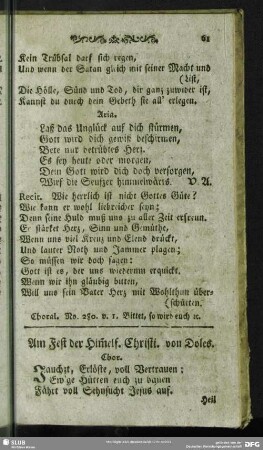 61
Kein Trübsal darf sich regen,
Und wenn der Satan gleich mit seiner Macht und
(List,
Die Hölle, Sünd und Tod, dir ganz zuwider ist,
Kannst du durch dein Gebeth sie all' erlegen.
Aria.
Laß das Unglück auf dich stürmen,
Gott wird dich gewiß beschirmen,
Bete nur betrübtes Herz.
Es sey heute oder morgen,
Dein Gott wird dich doch versorgen,
Wirf die Seufzer himmelwärts. V. A.
Recit. Wie herrlich ist nicht Gottes Güte?
Wie kann er wohl liebreicher seyn;
Denn seine Huld muß uns zu aller Zeit erfreun.
Er stärket Herz, Sinn und Gemüthe,
Wenn uns viel Kreuz und Elend drückt,
Und lauter Noth und Jammer plagen;
So müssen wir doch sagen:
Gott ist es, der uns wiederum erquickt,
Wenn wir ihn gläubig bitten,
Will uns sein Vater Herz mit Wohlthun über-
(schütten.
Choral. No. 280. v. 1. Bittet, so wird euch ꝛc.
Am Fest der Himelf. Christi. von Doles.
Chor.
Jauchzt, Erlöste, voll Vertrauen;
Ew'ge Hütten euch zu bauen
Fährt voll Sehnsucht Jesus auf.
Heil
SLUB
DFG